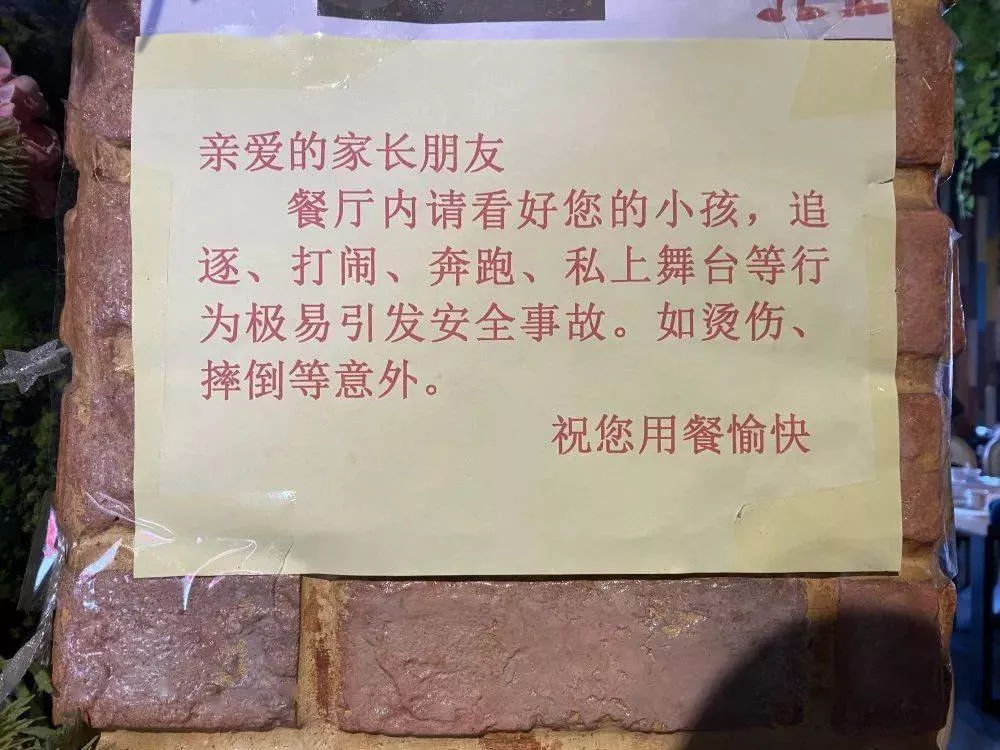 亲爱的家长朋友
餐厅内请看好您的小孩，追
逐、打闹、奔跑、私上舞台等行
为极易引发安全事故。如烫伤、
摔倒等意外。
祝您用餐愉快